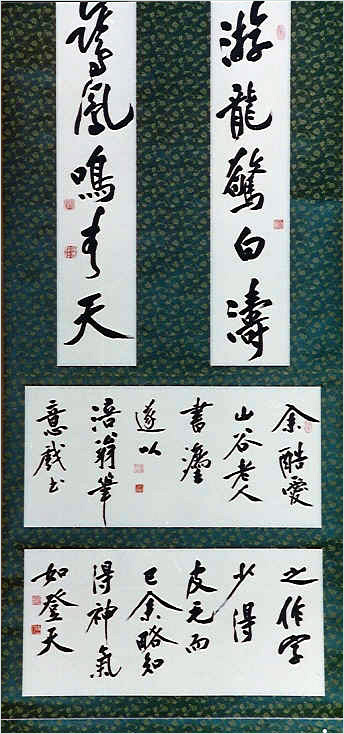 游龍驚白濤
鳳鳴青天
余酷愛
山谷老人
書灋
遂以
涪翁筆
意戲書
之作字
少得
皮毛而
已余略知
得神氣
如登天